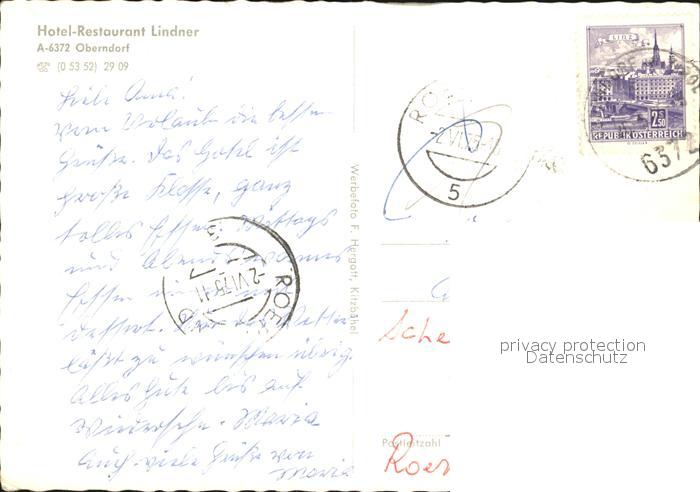 Hotel-Restaurant Lindner
A-6372 Oberndorf
☎ (0 53 52) 29 09
Liebe Oma!
vom Urlaub die besten
Grüße. Das Hotel ist
große Klasse, ganz
tolles Essen. Mittags
und Abends warmes
Essen
Dessert. Wetter
läßt zu wünschen übrig.
Alles Gute bis auf
Wiedersehn. Maria
Auch viele Grüße von
Maria
Werbefoto F. Hergott, Kitzbühel
-2.VI.75-11
ROE
LINZ
2 S 50
REPUBLIK ÖSTERREICH
6372
RO
-2.VI.75-1
5
Sche
privacy protection
Datenschutz
Postleitzahl
Roer